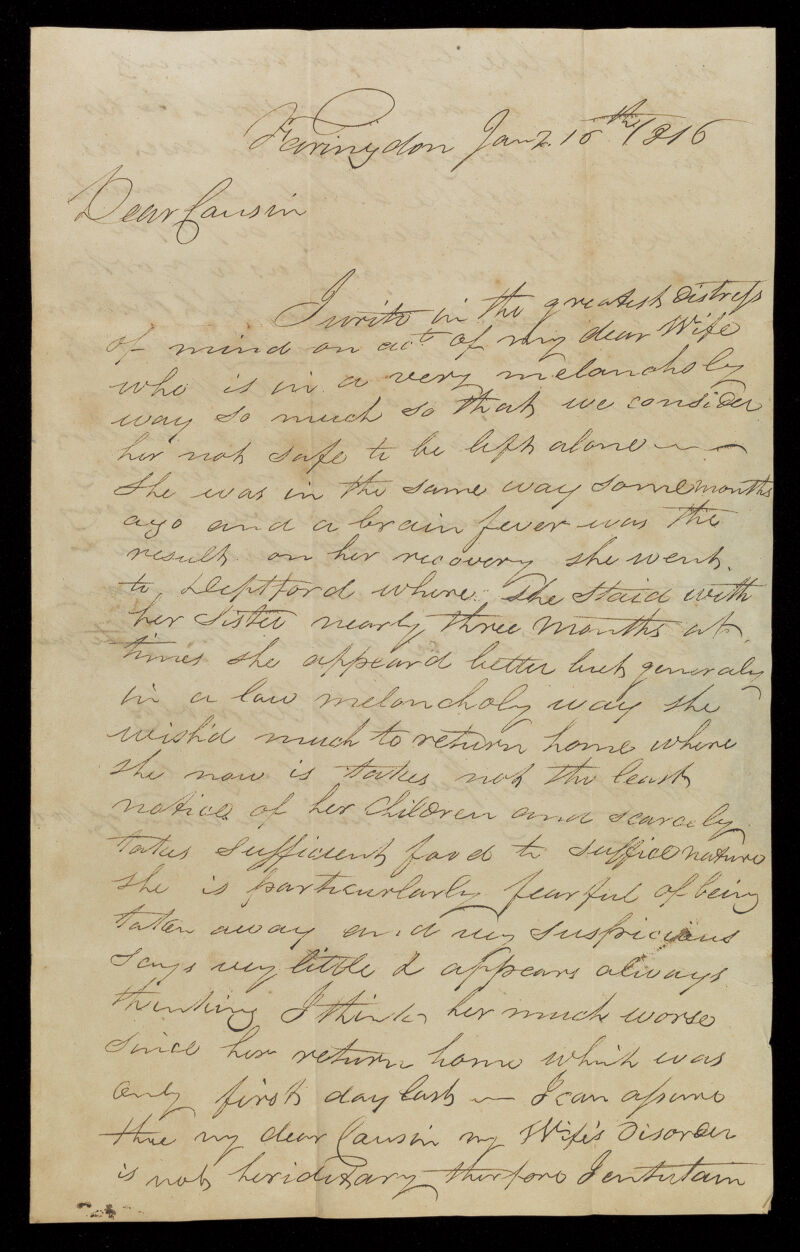 Faringdon Jany. 15th 1816
Dear Cousin
I write in the greatest distress
of mind on acct. of my dear Wife
who is in a very melancholy
way so much so that we consider
her not safe to be left alone —
She was in the same way some months
ago and a brain fever was the
result on her recovery she went
to Deptford where She staid with
her Sister nearly three Months at
times she appeard better but generaly
in a low melancholy way she
wish'd much to return home where
she now is takes not the least
notice of her Children and scarcely
takes sufficient food to suffice nature
she is particurlarly fearful of being
taken away and very suspicious
says very little & appears always
thinking I think her much worse
since her return home which was
only first day last — I can assure
thee my dear Cousin my Wife's disorder
is not heriditary therfore I entertain